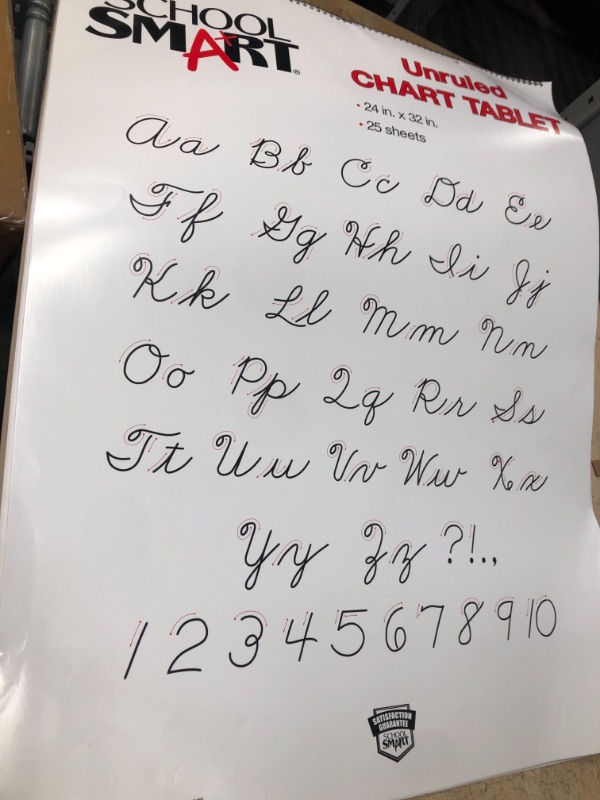 SCHOOL
SMART®
Unruled
CHART TABLET
• 24 in. x 32 in.
• 25 sheets
Aa Bb Cc Dd Ee
Ff Gg Hh Ii Jj
Kk Ll Mm Nn
Oo Pp Qq Rr Ss
Tt Uu Vv Ww Xx
Yy Zz ?!.,
1 2 3 4 5 6 7 8 9 10
SATISFACTION
GUARANTEE
SCHOOL
SMART